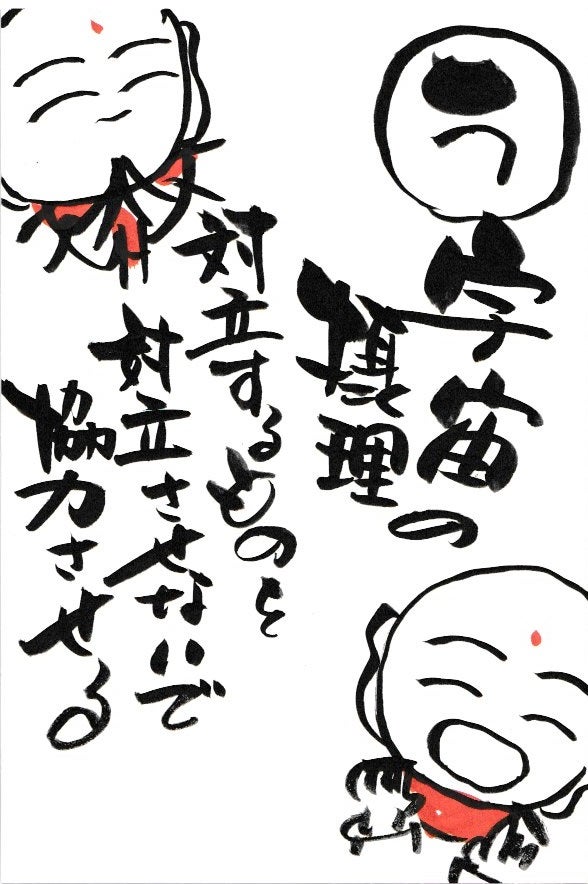 う
宇宙の
摂理
対立するものを
対立させないで
協力させる